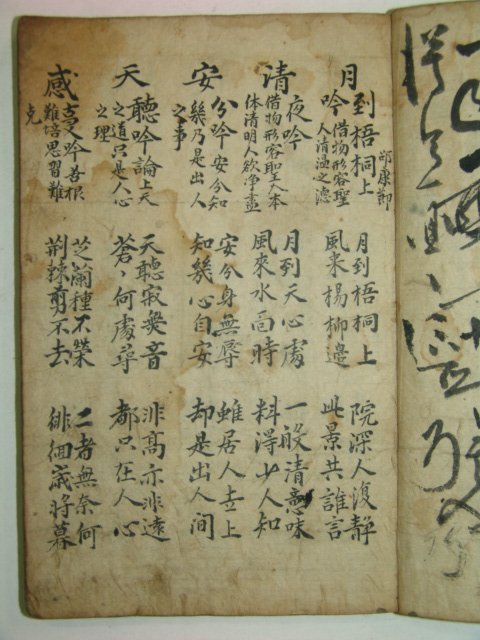 月到梧桐上 邵康節
吟 借物形容聖
人清溫之德
月到梧桐上
風来楊柳邊
院深人復靜
此景共誰言
清夜吟
借物形容聖人本
体清明人欲淨盡
月到天心處
風來水面時
一般清意味
料得少人知
安分吟 安分知
幾乃是出人
之事
安分身無辱
知幾心自安
雖居人世上
却是出人間
天聽吟 論上天
之道只是人心
之理
天聽寂無音
蒼〻何處尋
非高亦非遠
都只在人心
感叓吟 善根
難培思習難
克
芝蘭種不榮
荆棘剪不去
二者無奈何
徘徊歲將暮